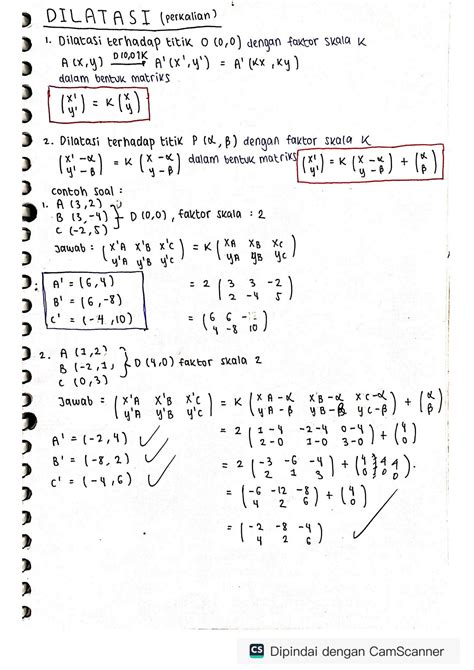 DILATASI (perkalian)
1. Dilatasi terhadap titik O (0,0) dengan faktor skala K
A (x,y) D[0,0]K → A' (x',y') = A' (Kx, Ky)
dalam bentuk matriks
(x' y') = K (x y)
2. Dilatasi terhadap titik P (α, β) dengan faktor skala K
(x'-α y'-β) = K (x-α y-β) dalam bentuk matriks (x' y') = K (x-α y-β) + (α β)
contoh soal :
1. A (3,2)
B (3,-4) } D (0,0), faktor skala : 2
C (-2,5)
Jawab : (x'A x'B x'C
y'A y'B y'C) = K (xA xB xC
yA yB yC)
A' = (6,4)
B' = (6,-8)
C' = (-4,10)
= 2 (3 3 -2
2 -4 5)
= (6 6 -
4 -8 10)
2. A (1,2)
B (-2,1) } D (4,0) faktor skala 2
C (0,3)
Jawab = (x'A x'B x'C
y'A y'B y'C) = K (xA-α xB-α xC-α
yA-β yB-β yC-β) + (α β)
= 2 (1-4 -2-4 0-4
2-0 1-0 3-0) + (4 0)
A' = (-2,4) ✓
B' = (-8,2) ✓
C' = (-4,6) ✓
= 2 (-3 -6 -4
2 1 3) + (4 4 4
0 0 0).
= (-6 -12 -8
4 2 6) + (4 0)
= (-2 -8 -4
4 2 6) ✓
CS Dipindai dengan CamScanner